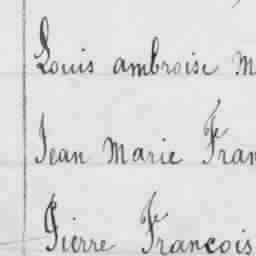 Louis ambroise M
Jean Marie Fran
Pierre François